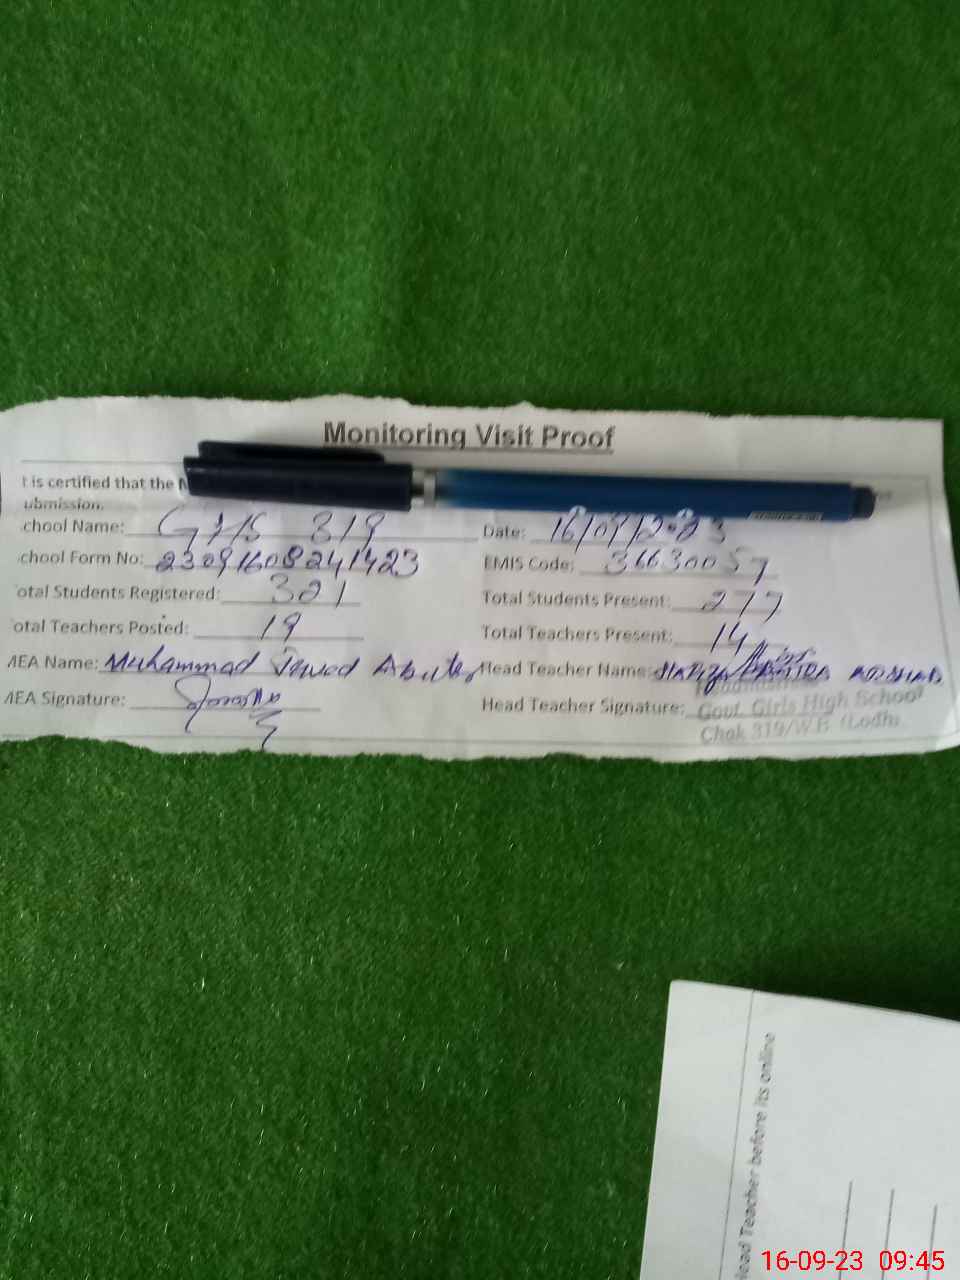 Monitoring Visit Proof
t is certified that the
ubmission.
chool Name: GHS 319 Date: 16/09/2023
chool Form No: 23091608241423 EMIS Code: 36630057
otal Students Registered: 321 Total Students Present: 277
otal Teachers Posted: 19 Total Teachers Present: 14
MEA Name: Muhammad Head Teacher Name: ARSHAD
MEA Signature: Head Teacher Signature:
Govt. Girls High School
Chak 319/W.B (Lodh
ead Teacher before its online
16-09-23 09:45